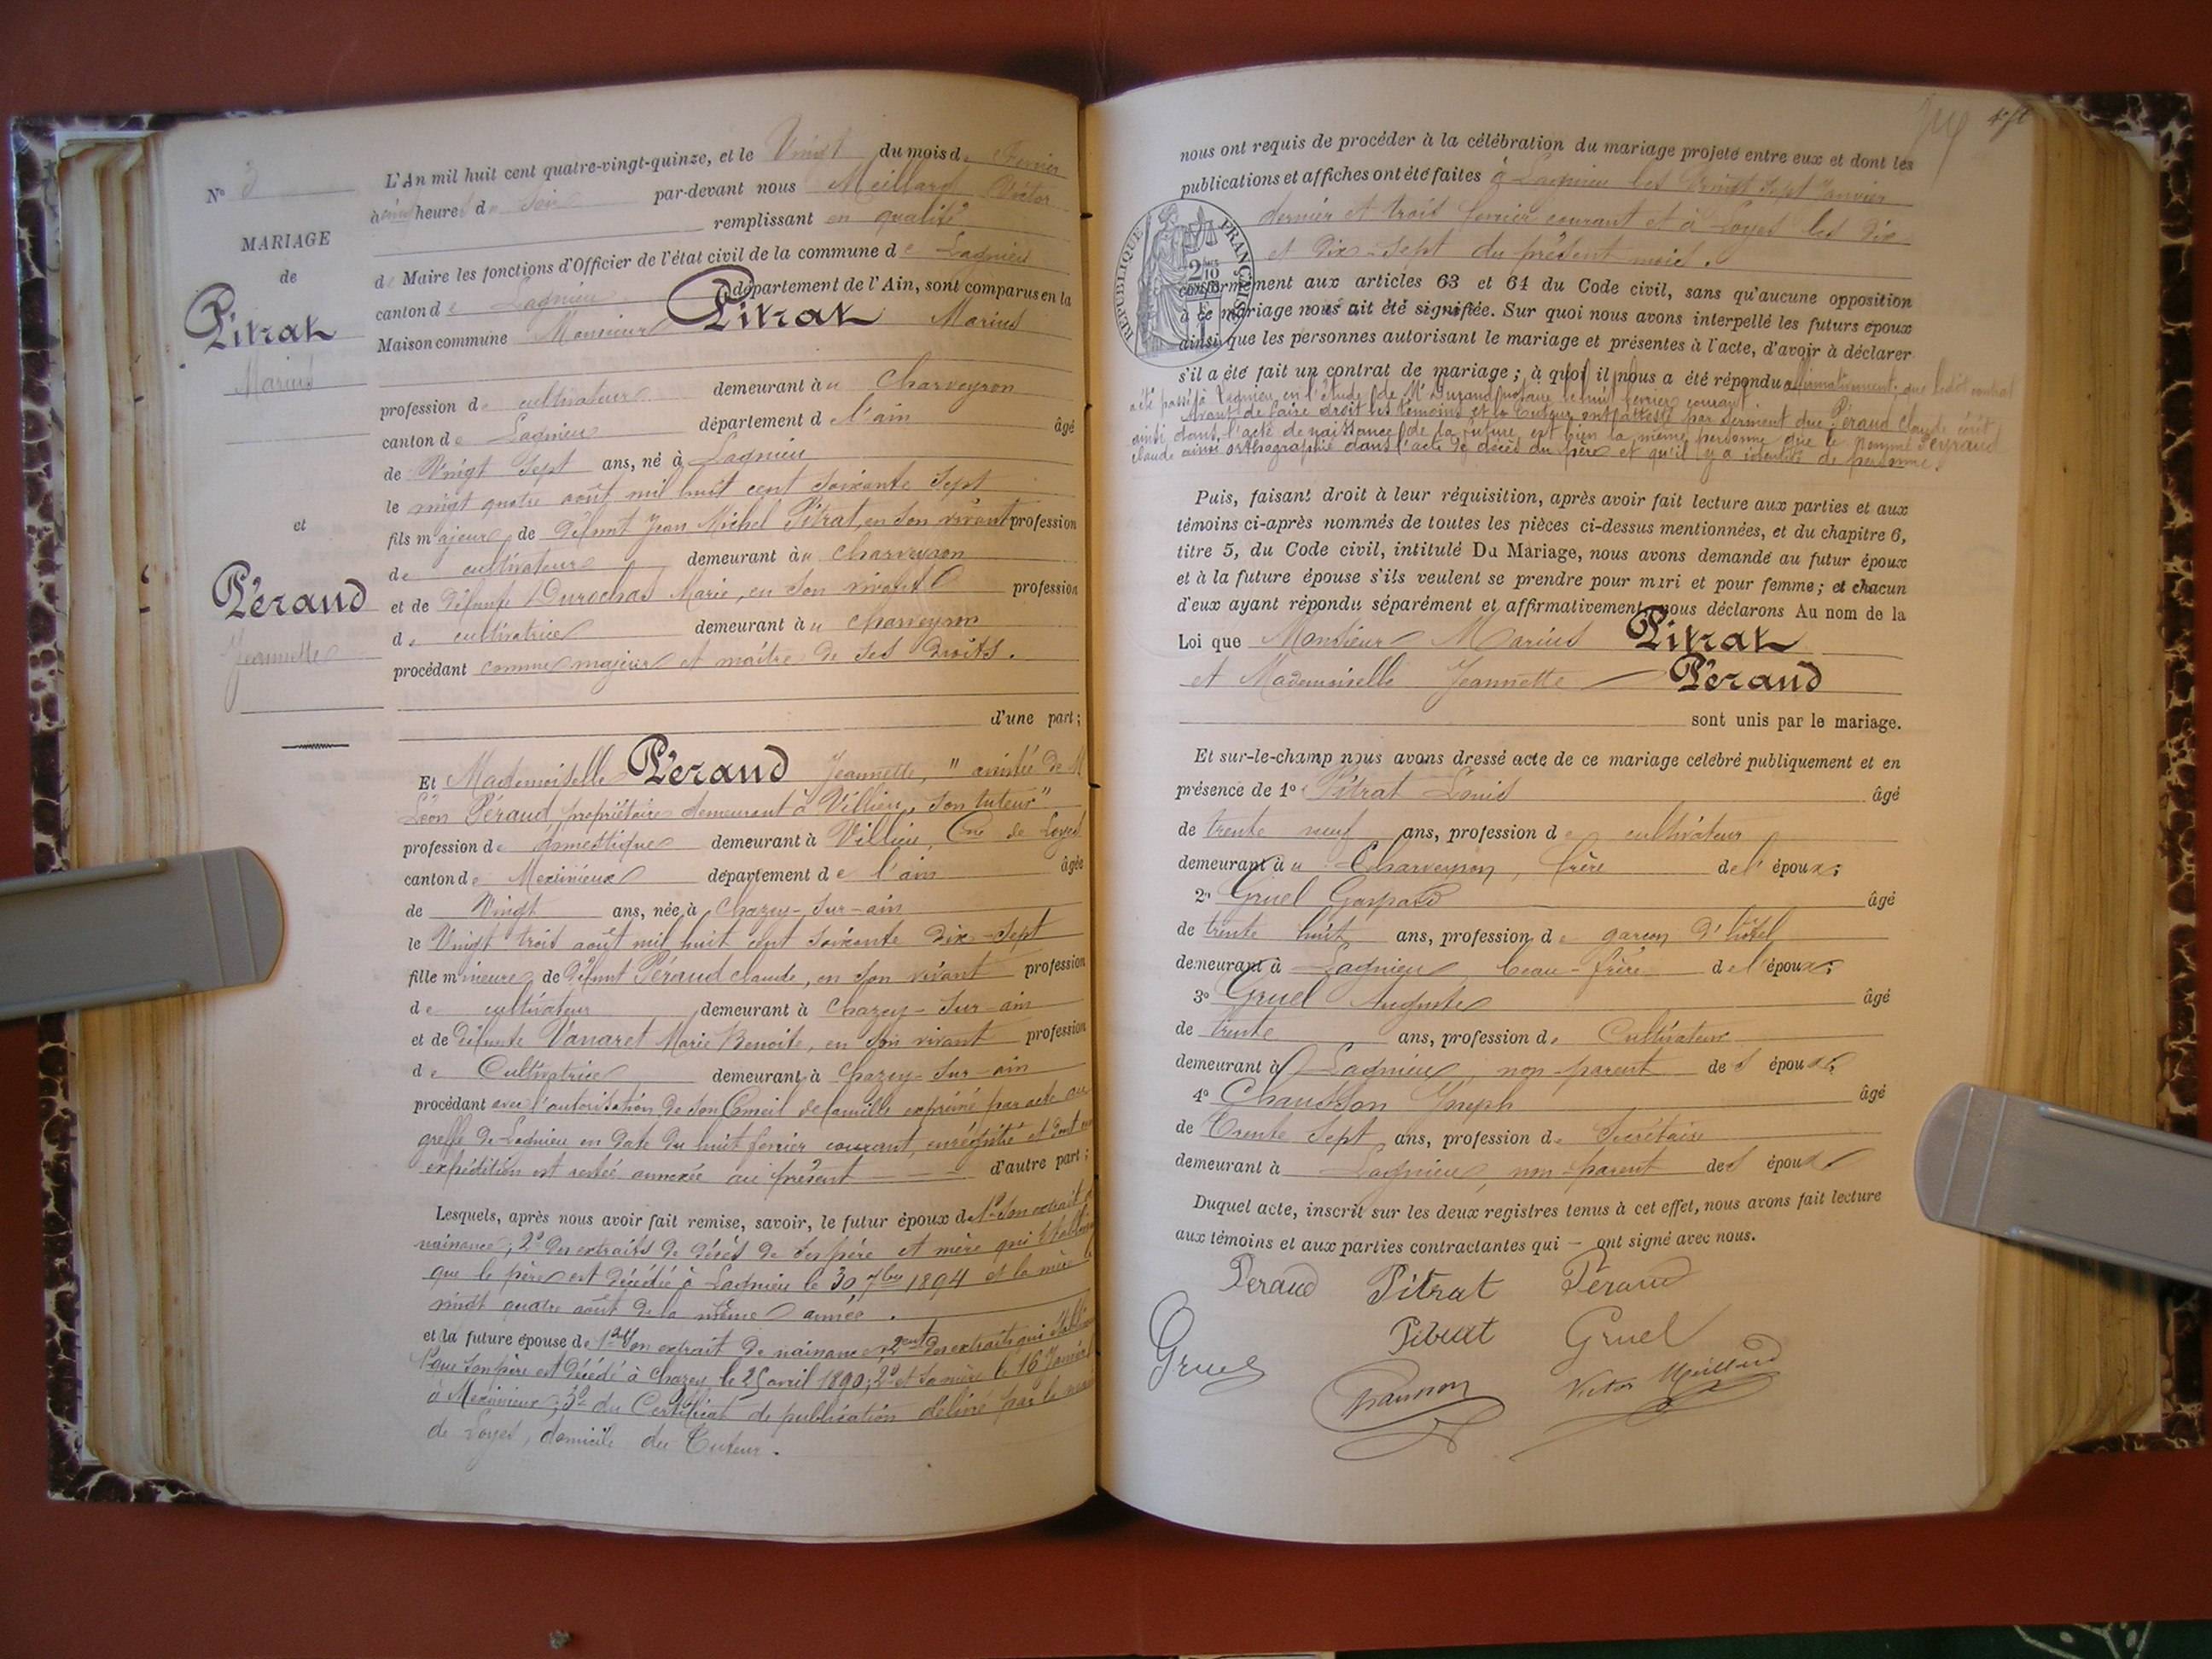 N° 3
MARIAGE
de
Pitrat
Marius
et
Péraud
Jeannette
L'An mil huit cent quatre-vingt-quinze, et le Vingt du mois de Février
à cinq heures du Soir par-devant nous Meillard Victor
remplissant en qualité
de Maire les fonctions d'Officier de l'état civil de la commune de Lagnieu
canton de Lagnieu département de l'Ain, sont comparus en la
Maison commune Monsieur Pitrat Marius
profession de cultivateur demeurant à Charveyron
canton de Lagnieu département de l'ain âgé
de Vingt Sept ans, né à Lagnieu
le vingt quatre août mil huit cent soixante sept
fils majeur de défunt Jean Michel Pitrat, en son vivant profession
de cultivateur demeurant à Charveyron
et de défunte Durochas Marie, en son vivant profession
de cultivatrice demeurant à Charveyron
procédant comme majeur et maître de ses droits.
d'une part;
Et Mademoiselle Péraud Jeannette, "assistée de M
Léon Péraud propriétaire demeurant à Villieu, son tuteur"
profession de domestique demeurant à Villieu, Cne de Loyes
canton de Meximieux département de l'ain âgée
de Vingt ans, née à Chazey-Sur-ain
le Vingt trois août mil huit cent soixante dix-sept
fille mineure de défunt Péraud claude, en son vivant profession
de cultivateur demeurant à Chazey-Sur-ain
et de défunte Vanaret Marie Benoite, en son vivant profession
de Cultivatrice demeurant à Chazey-Sur-ain
procédant avec l'autorisation de son Conseil de famille exprimé par acte au
greffe de Lagnieu en date du huit fevrier courant, enrégistré et dont une
expédition est restée annexée au présent d'autre part;
Lesquels, après nous avoir fait remise, savoir, le futur époux de 1° Son extrait de
naissance; 2° des extraits de décès de ses père et mère qui établissent
que le père est décédé à Lagnieu le 30 7bre 1894 et la mère le
vingt quatre août de la même année.
et la future épouse de 1° Son extrait de naissance; 2ent des extraits qui établissent
1° que son père est décédé à Chazey le 25 avril 1890; 2° et sa mère le 16 Janvier
à Meximieux; 3° du Certificat de publication délivré par le maire
de Loyes, domicile du Tuteur.
nous ont requis de procéder à la célébration du mariage projeté entre eux et dont les
publications et affiches ont été faites à Lagnieu les Vingt Sept Janvier
dernier et trois fevrier courant et à Loyes les Dix
et Dix-Sept du présent mois.
RÉPUBLIQUE FRANÇAISE
conformément aux articles 63 et 64 du Code civil, sans qu'aucune opposition
à ce mariage nous ait été signifiée. Sur quoi nous avons interpellé les futurs époux
ainsi que les personnes autorisant le mariage et présentes à l'acte, d'avoir à déclarer
s'il a été fait un contrat de mariage; à quoi il nous a été répondu affirmativement; que ledit contrat
a été passé à Lagnieu en l'étude de Me Durand notaire le huit fevrier courant
Avant de faire droit les témoins et le Tuteur ont attesté par serment que Péraud Claude écrit
ainsi dans l'acte de naissance de la future est bien la même personne que le nommé Perraud
claude ainsi orthographié dans l'acte de décès du père et qu'il y a identité de personne.
Puis, faisant droit à leur réquisition, après avoir fait lecture aux parties et aux
témoins ci-après nommés de toutes les pièces ci-dessus mentionnées, et du chapitre 6,
titre 5, du Code civil, intitulé Du Mariage, nous avons demandé au futur époux
et à la future épouse s'ils veulent se prendre pour mari et pour femme; et chacun
d'eux ayant répondu séparément et affirmativement, nous déclarons Au nom de la
Loi que Monsieur Marius Pitrat
et Mademoiselle Jeannette Péraud
sont unis par le mariage.
Et sur-le-champ nous avons dressé acte de ce mariage célébré publiquement et en
présence de 1° Pitrat Louis âgé
de trente neuf ans, profession de cultivateur
demeurant à Charveyron, frère de l'époux;
2° Gruel Gaspard âgé
de trente huit ans, profession de garçon d'hôtel
demeurant à Lagnieu beau-frère de l'époux;
3° Gruel Auguste âgé
de trente ans, profession de Cultivateur
demeurant à Lagnieu, non parent des époux;
4° Chausson Joseph âgé
de Trente Sept ans, profession de Secrétaire
demeurant à Lagnieu, non-parent des époux
Duquel acte, inscrit sur les deux registres tenus à cet effet, nous avons fait lecture
aux témoins et aux parties contractantes qui — ont signé avec nous.
Peraud Pitrat Péraud
Pitrat Gruel
Gruel
Chausson Victor Meillard